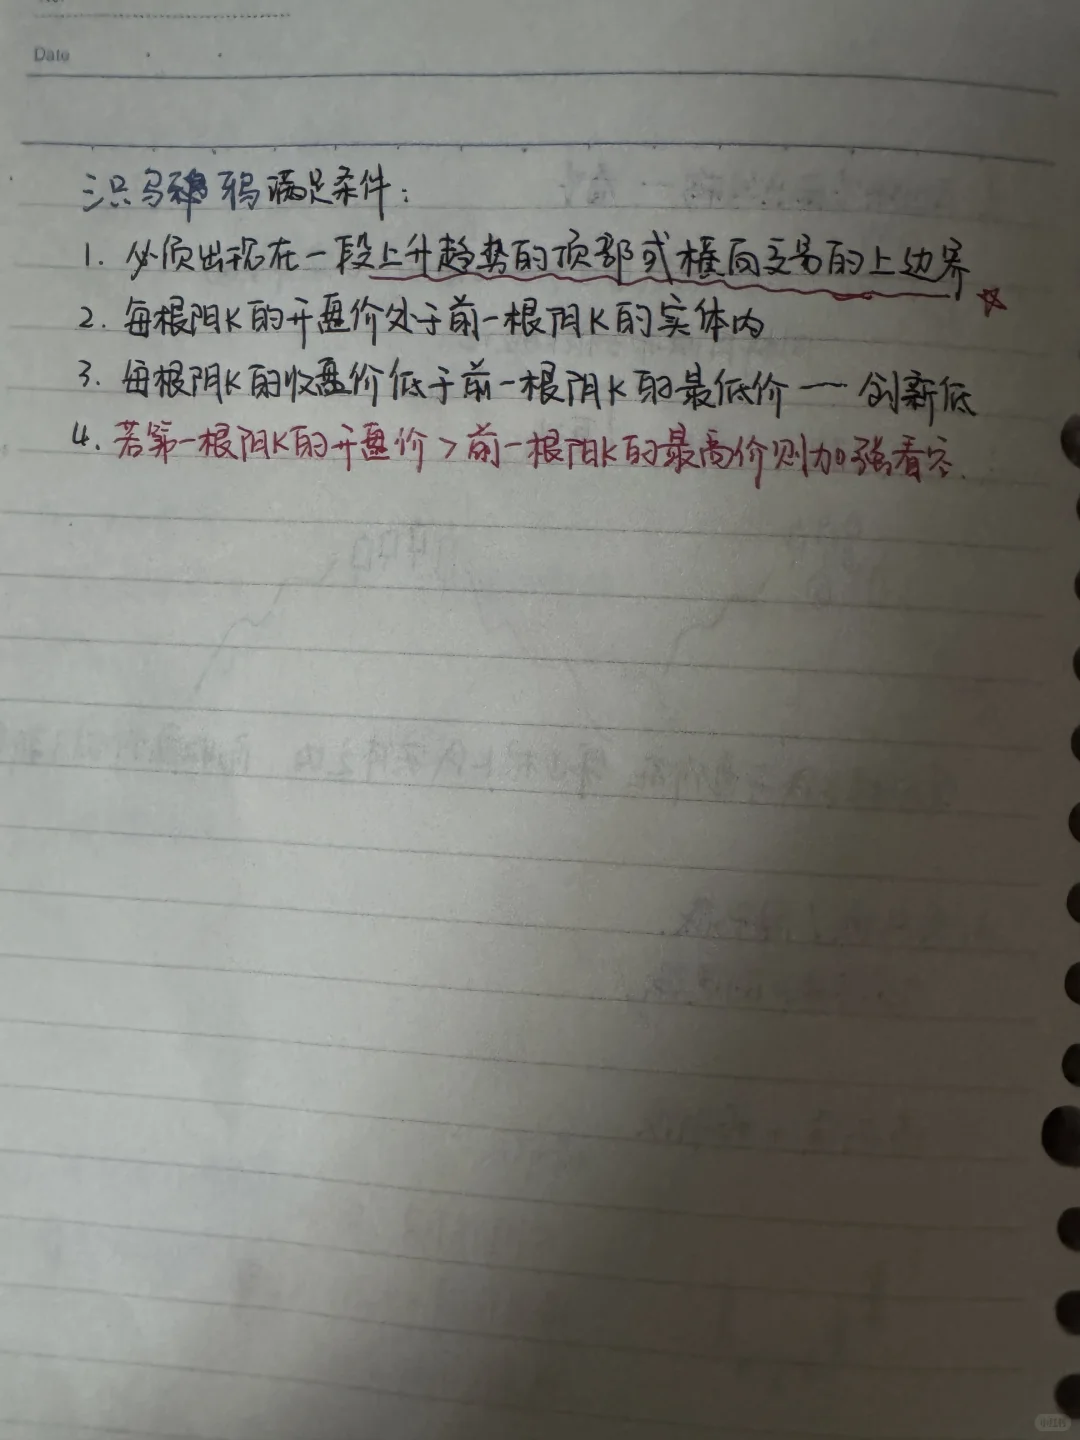 Date
三只乌鸦鸦满足条件：
1. 必须出现在一段上升趋势的顶部或横向交易的上边界
2. 每根阴K的开盘价处于前一根阴K的实体内
3. 每根阴K的收盘价低于前一根阴K的最低价 —— 创新低
4. 若第一根阴K的开盘价 > 前一根阳K的最高价则加强看空.
小红书